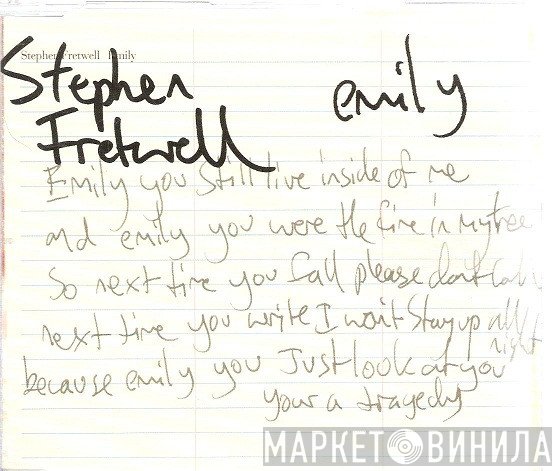 Stephen Fretwell Emily
Stephen emily
Fretwell
Emily you still live inside of me
and emily you were the fire in my tree
So next time you fall please dont call
next time you write I wont stay up all night
because emily you Just look at you
your a tragedy
МАРКЕТ ВИНИЛА